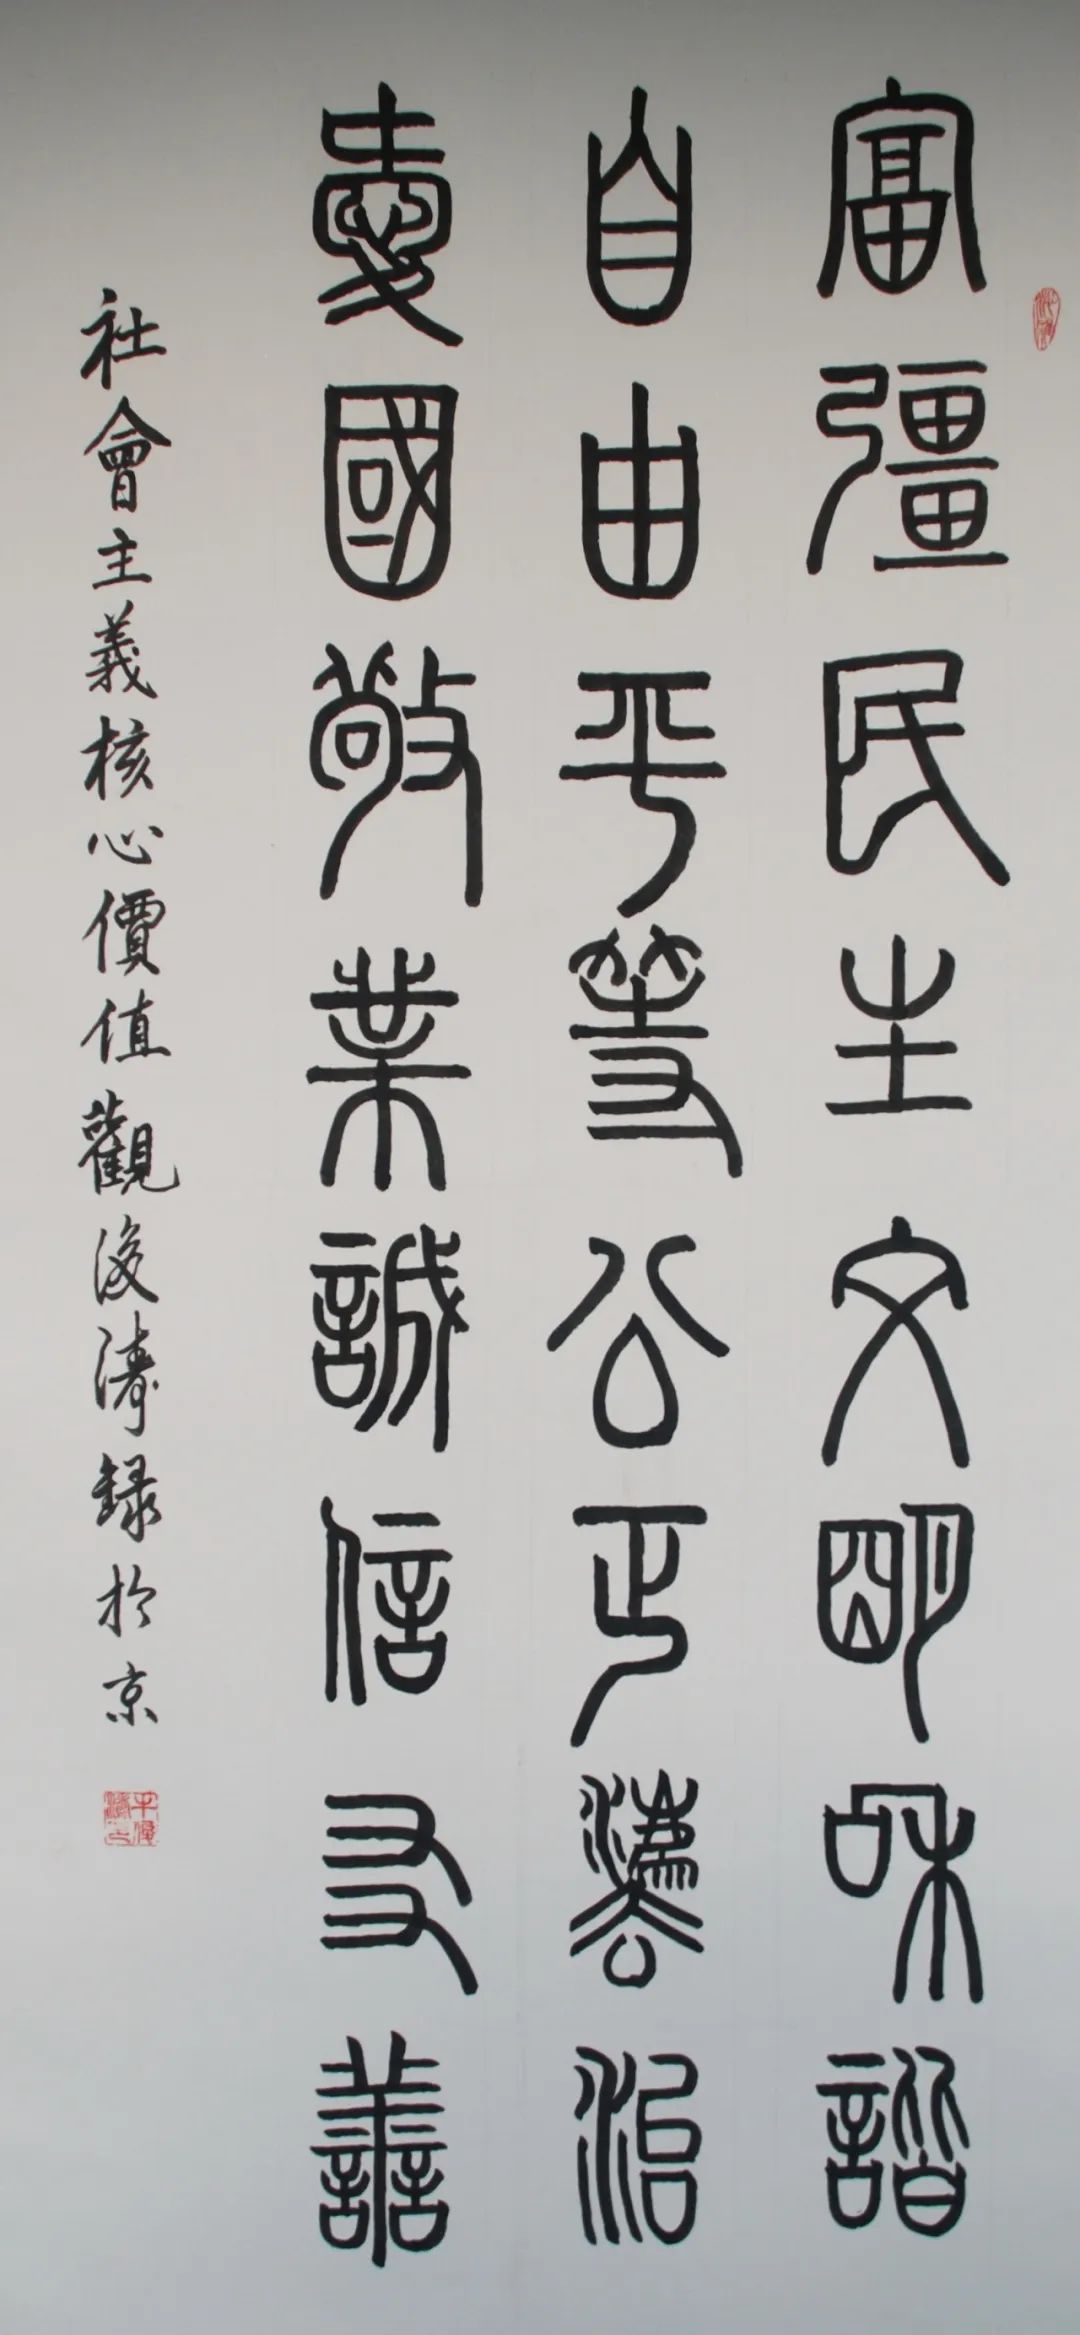 富彊民主文明和諧
自由平等公正灋治
愛國敬業誠信友善
社會主義核心價值觀俊濤録於京